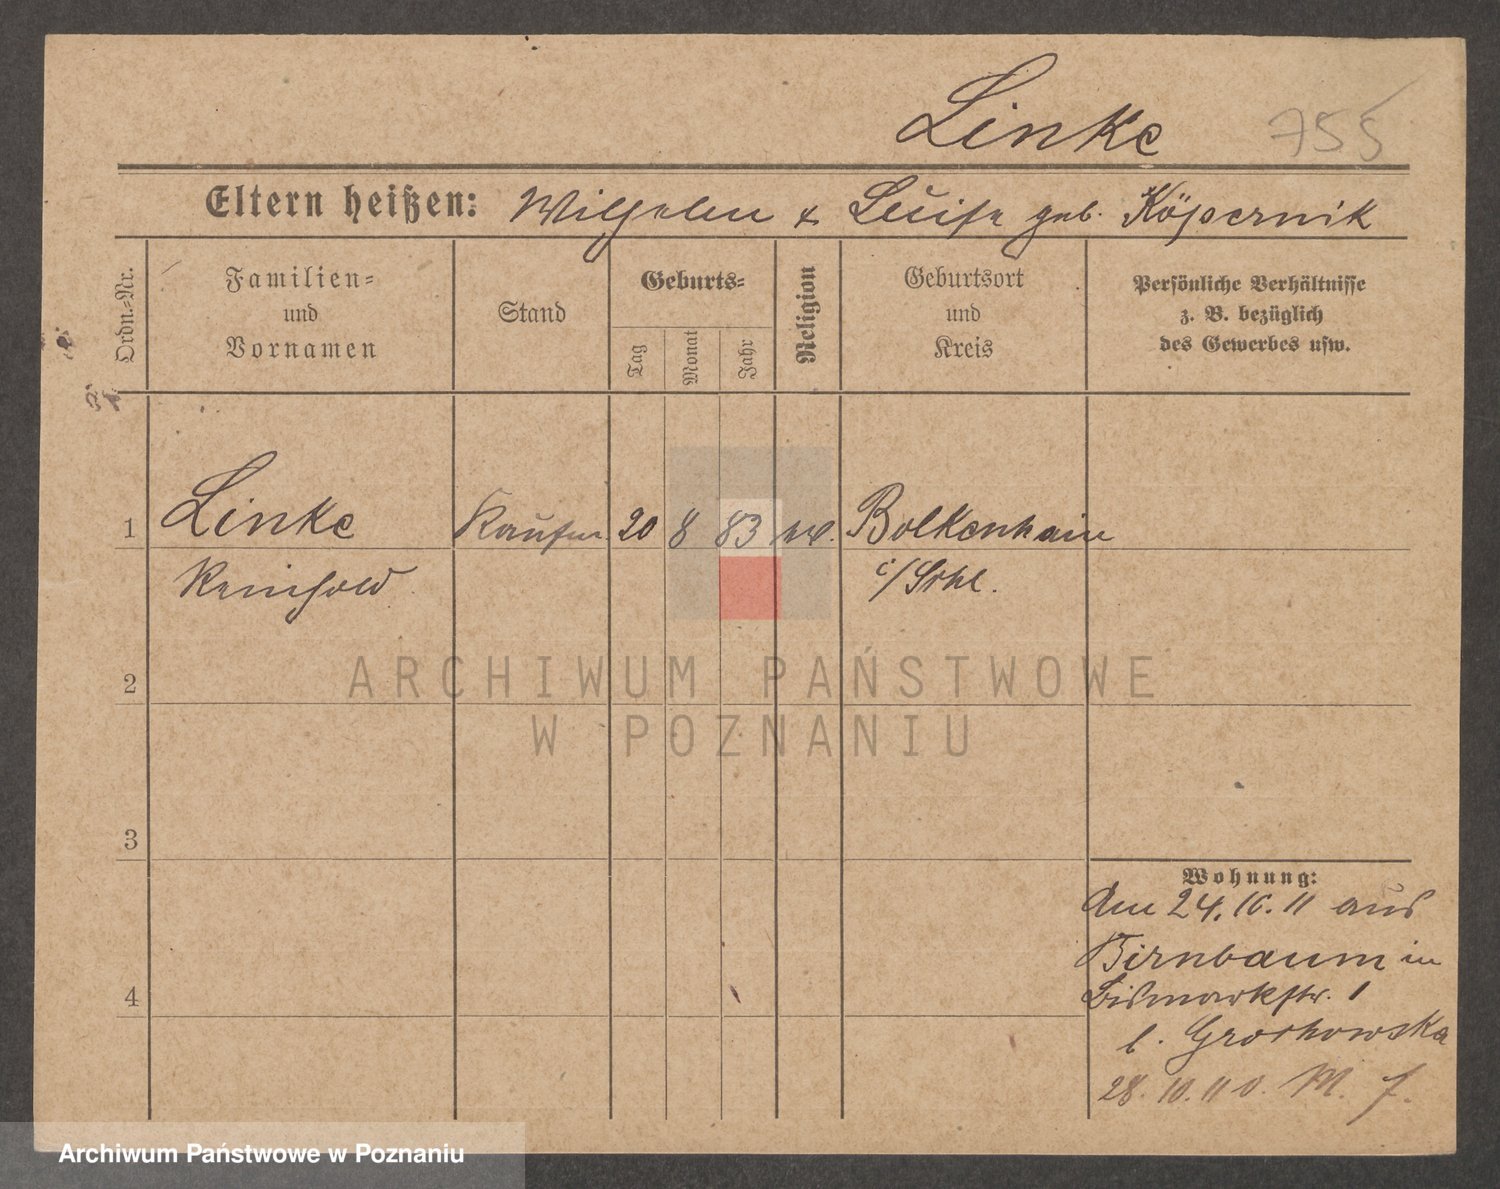 Linke 755
Eltern heißen: Wilhelm & Luise geb. Köpernik
Ordn.-Nr.
Familien-
und
Vornamen
Stand
Geburts-
Tag
Monat
Jahr
Religion
Geburtsort
und
Kreis
Persönliche Verhältnisse
z. B. bezüglich
des Gewerbes usw.
1 Linke Kaufm. 20 8 83 ev. Bolkenhain
Reinhold i/Schl.
2
3
4
Wohnung:
Am 24.10.11 aus
Birnbaum in
Bismarkstr. 1
b. Grochowska
28.10.11 v. M. f.
ARCHIWUM PAŃSTWOWE
W POZNANIU
Archiwum Państwowe w Poznaniu